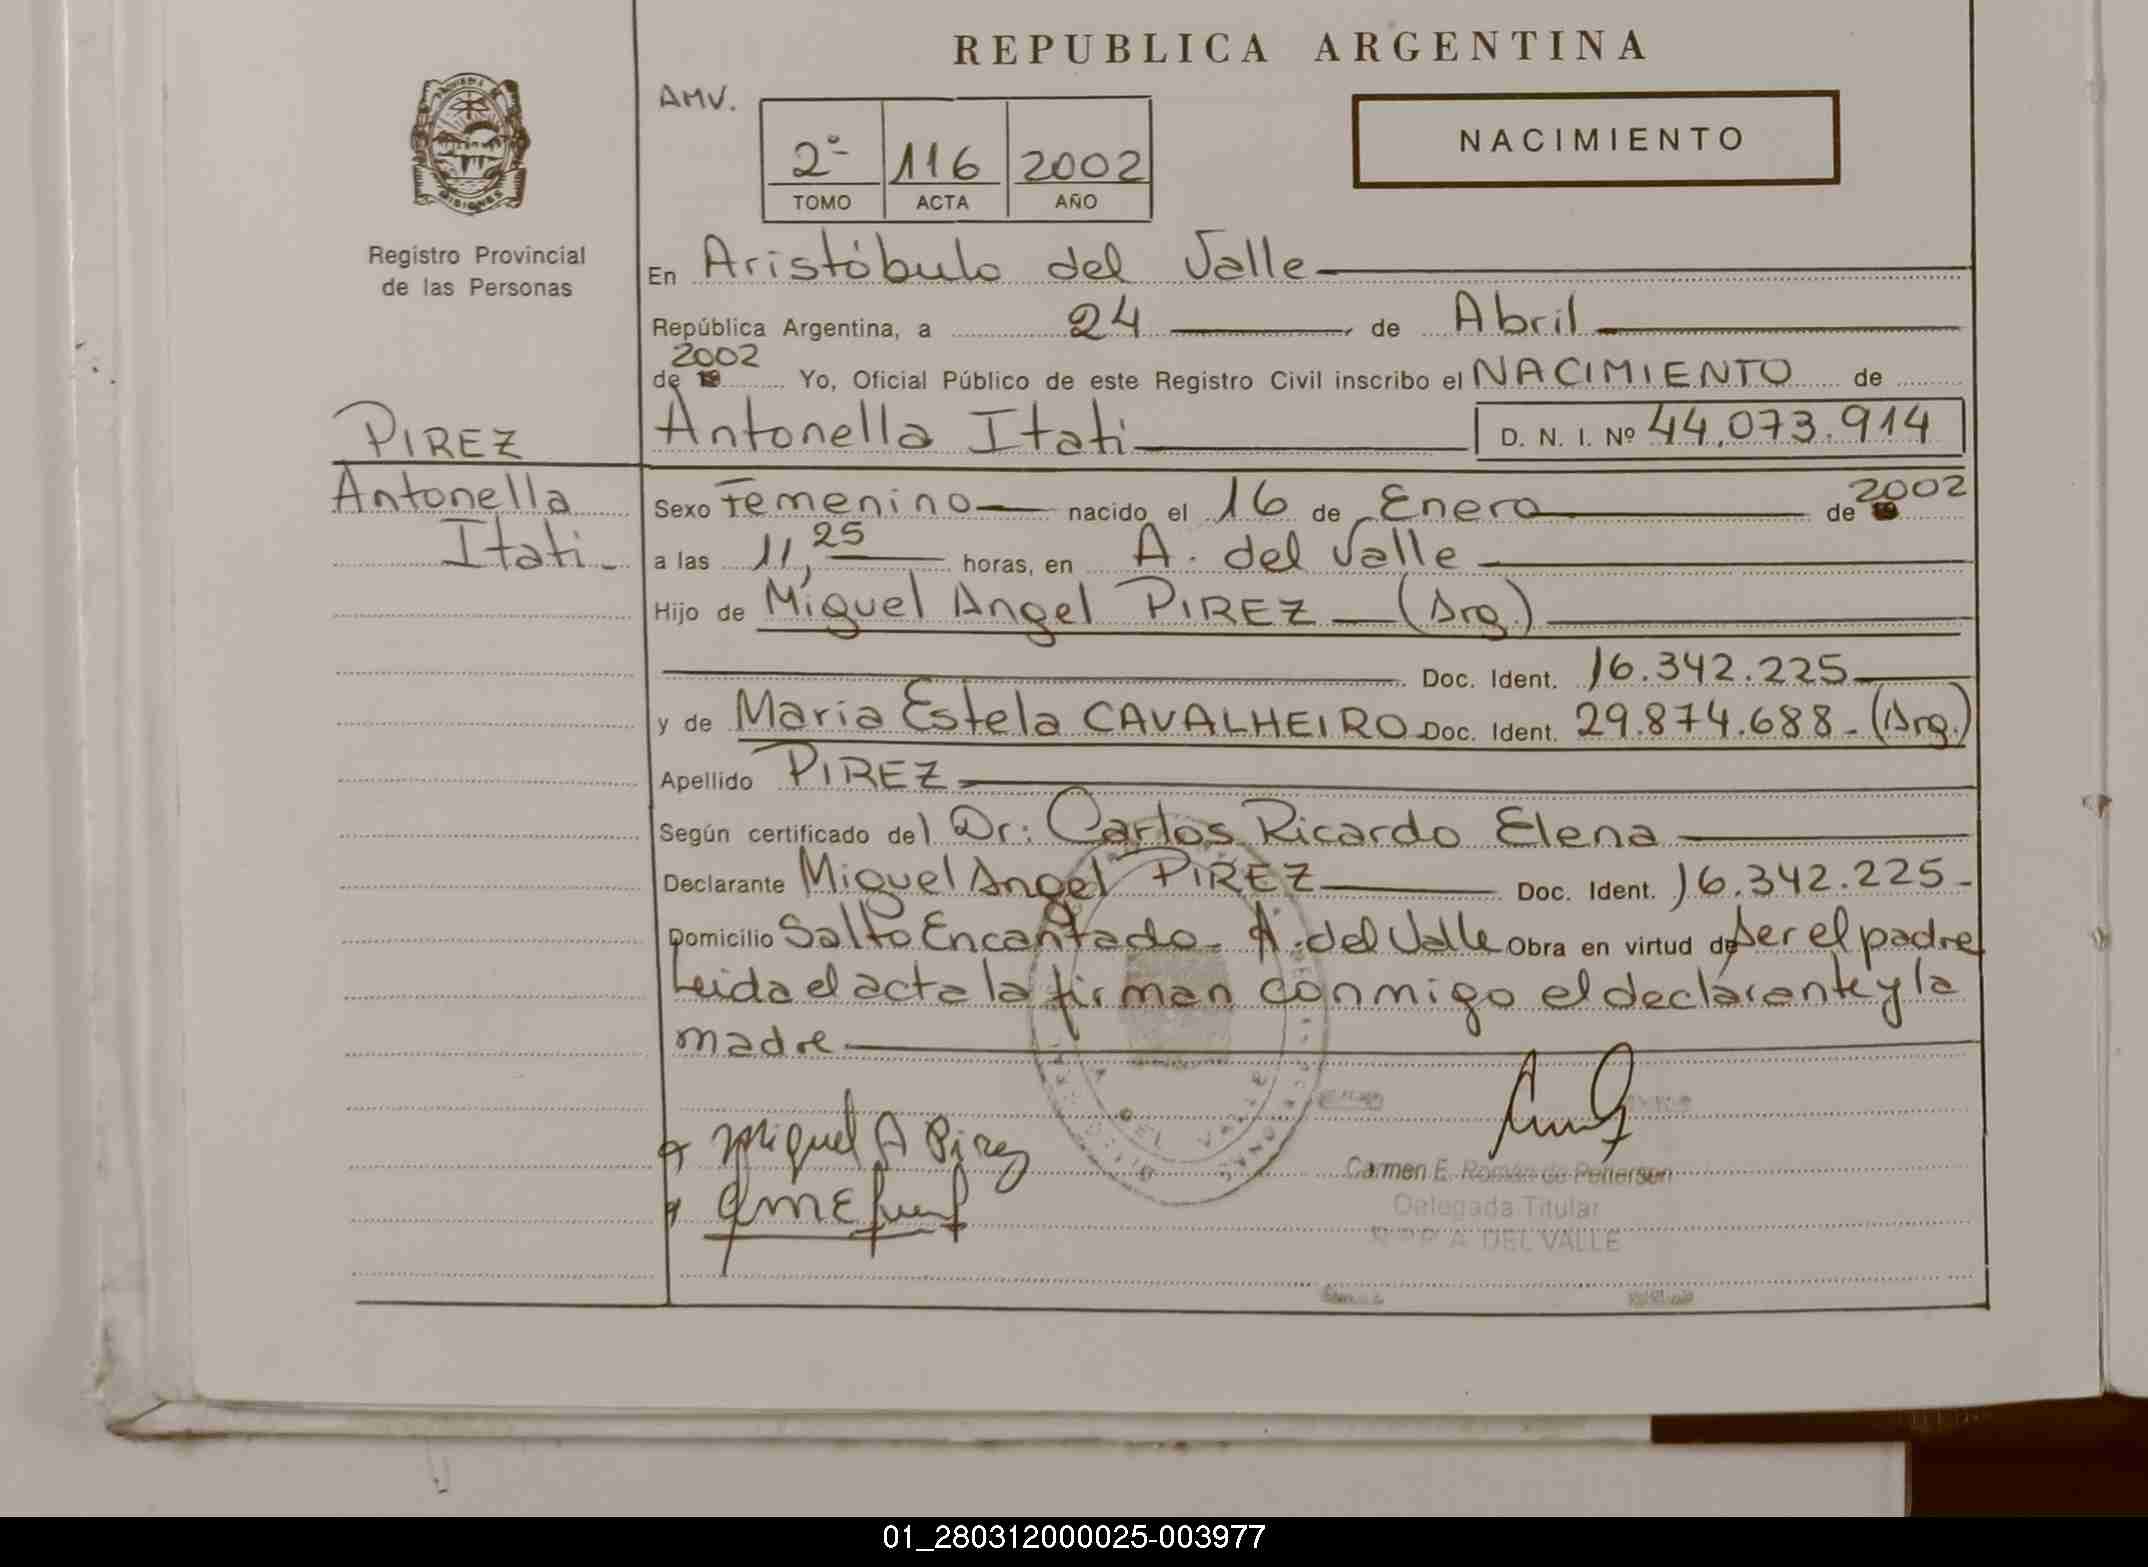 REPUBLICA ARGENTINA
AMV.
NACIMIENTO
2º 116 2002
TOMO ACTA AÑO
MISIONES
Registro Provincial
de las Personas
En Aristóbulo del Valle
República Argentina, a 24 de Abril
2002
de 19 Yo, Oficial Público de este Registro Civil inscribo el NACIMIENTO de
Antonella Itati D. N. I. Nº 44.073.914
PIREZ
Antonella
Itati
Sexo Femenino nacido el 16 de Enero de 2002
a las 11,25 horas, en A. del Valle
Hijo de Miguel Angel PIREZ (Arg.)
Doc. Ident. 16.342.225
y de Maria Estela CAVALHEIRO Doc. Ident. 29.874.688 - (Arg.)
Apellido PIREZ
Según certificado del Dr: Carlos Ricardo Elena
Declarante Miguel Angel PIREZ Doc. Ident. 16.342.225-
Domicilio Salto Encantado - A. del Valle Obra en virtud de ser el padre
Leida el acta la firman conmigo el declarante y la
madre
Miguel A Pirez
Carmen E. Román de Petterson
Delegada Titular
A. DEL VALLE
01_280312000025-003977